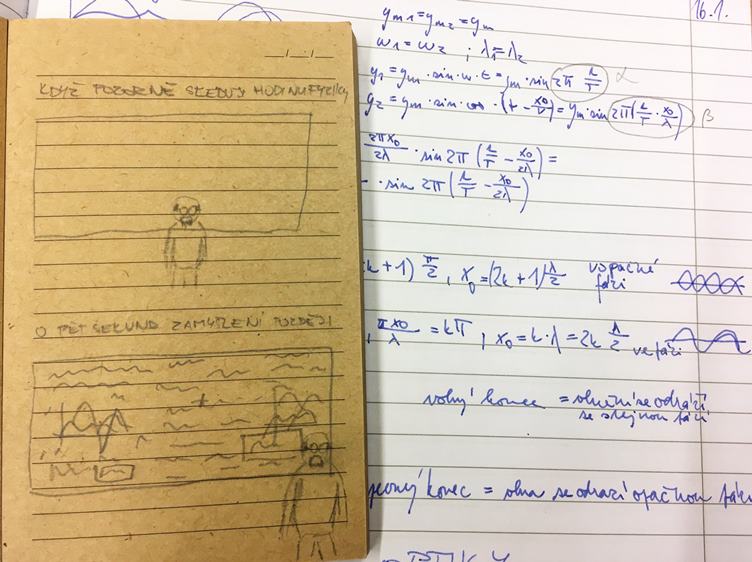 __/__.__
KDYŽ POZORNĚ SLEDUJI HODINU FYZIKY
O PĚT SEKUND ZAMYŠLENÍ POZDĚJI
16.1.
y_m1 = y_m2 = y_m
w_1 = w_2 ; λ_1 = λ_2
y_1 = y_m · sin · w · t = y_m · sin 2π t/T α
y_2 = y_m · sin · ω · (t - x_0/v) = y_m sin 2π(t/T · x_0/λ) β
2πx_0/2λ · sin 2π (t/T - x_0/2λ) =
· sin 2π (t/T - x_0/2λ)
k+1) π/2 , x_0 = (2k+1) λ/2 v opačné
fázi
, πx_0/λ = kπ , x_0 = k·λ = 2k λ/2 ve fázi
volný konec = vlnění se odráží
se stejnou fází
pevný konec = vlna se odrazí opačnou fází